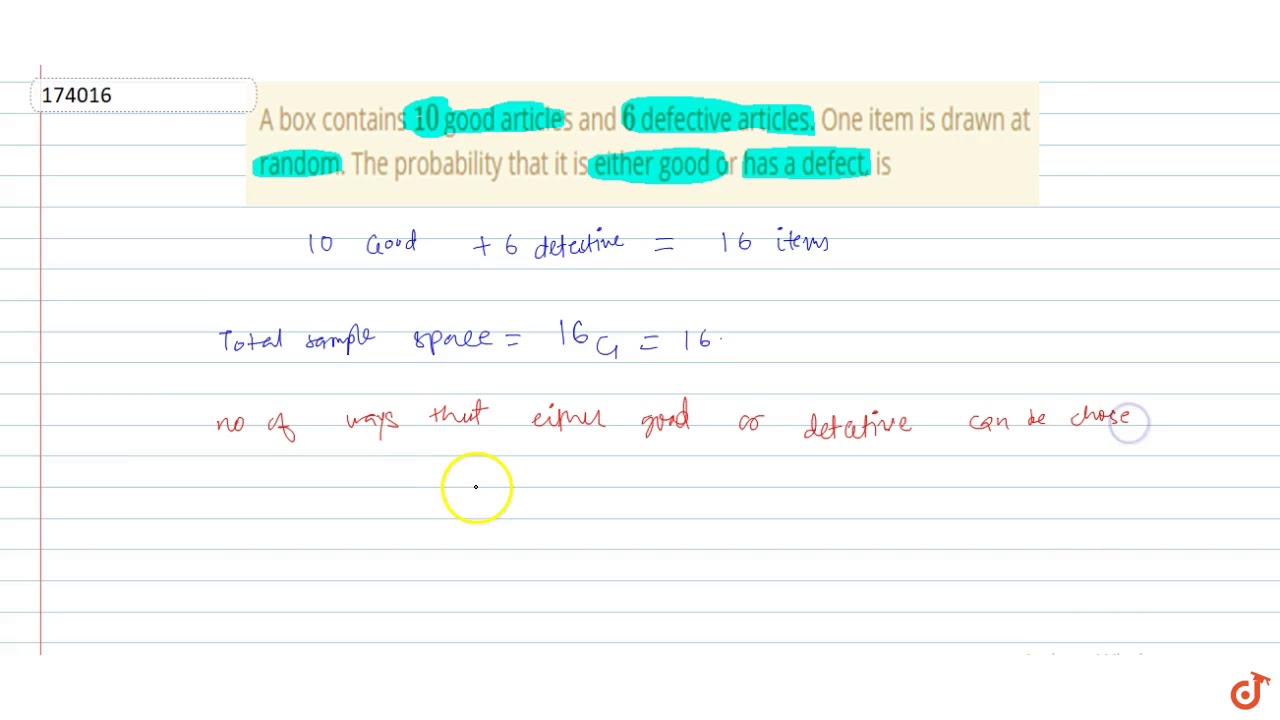 174016
A box contains 10 good articles and 6 defective articles. One item is drawn at
random. The probability that it is either good or has a defect, is
10 Good + 6 defective = 16 items
Total sample space = 16C1 = 16.
no of ways that either good or defective can be chose